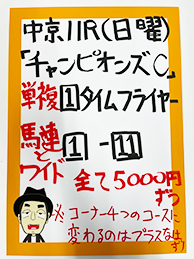 中京11R(日曜)
「チャンピオンズC」
単複1タイムフライヤー
馬連とワイド 1-11
全て5000円ずつ
※コーナー4つのコースに
変わるのはプラスなはず!